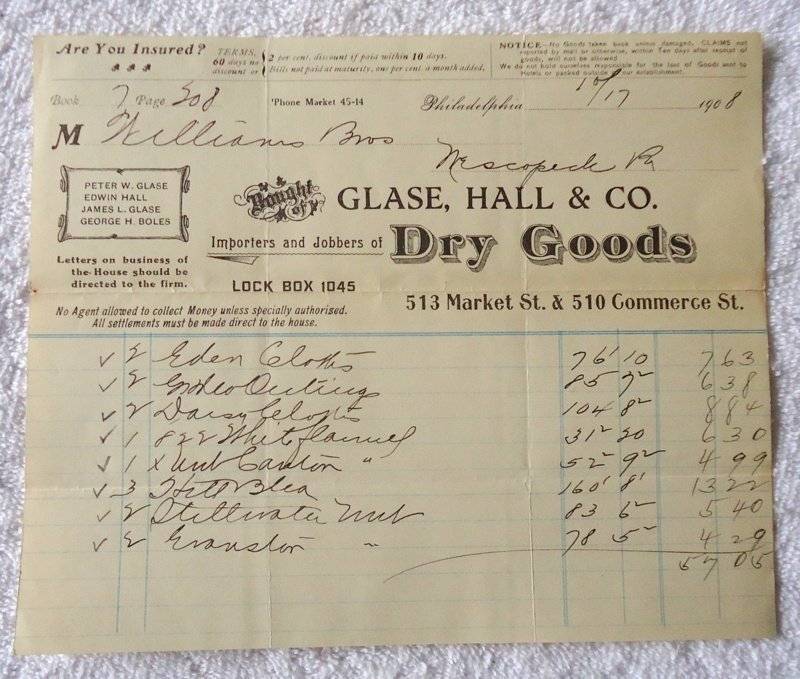 Are You Insured?
TERMS,
60 days no
discount or
2 per cent. discount if paid within 10 days.
Bills not paid at maturity, one per cent a month added.
NOTICE—No Goods taken back unless damaged, CLAIMS not
reported by mail or otherwise, within Ten days after receipt of
goods, will not be allowed
We do not hold ourselves responsible for the loss of Goods sent to
Hotels or packed outside of our establishment.
Book 7 Page 308
'Phone Market 45-14
Philadelphia 10/17 1908
M Williams Bros
Nescopeck Pa
PETER W. GLASE
EDWIN HALL
JAMES L. GLASE
GEORGE H. BOLES
Bought of
GLASE, HALL & CO.
Importers and Jobbers of Dry Goods
Letters on business of
the House should be
directed to the firm.
LOCK BOX 1045
513 Market St. & 510 Commerce St.
No Agent allowed to collect Money unless specially authorized.
All settlements must be made direct to the house.
✓ 2 Eden Cloths 76¹ 10 7 63
✓ 2 Outings 85 7² 6 38
✓ 2 Daisy Cloths 104 8² 8 84
✓ 1 822 Whit flannel 31² 20 6 30
✓ 1 X Unb Canton " 52² 9² 4 99
✓ 3 Hill Blea 160¹ 8¹ 13 22
✓ 2 Stillwater Unb 83 6² 5 40
✓ 2 Evanston " 78 5² 4 29
57 05